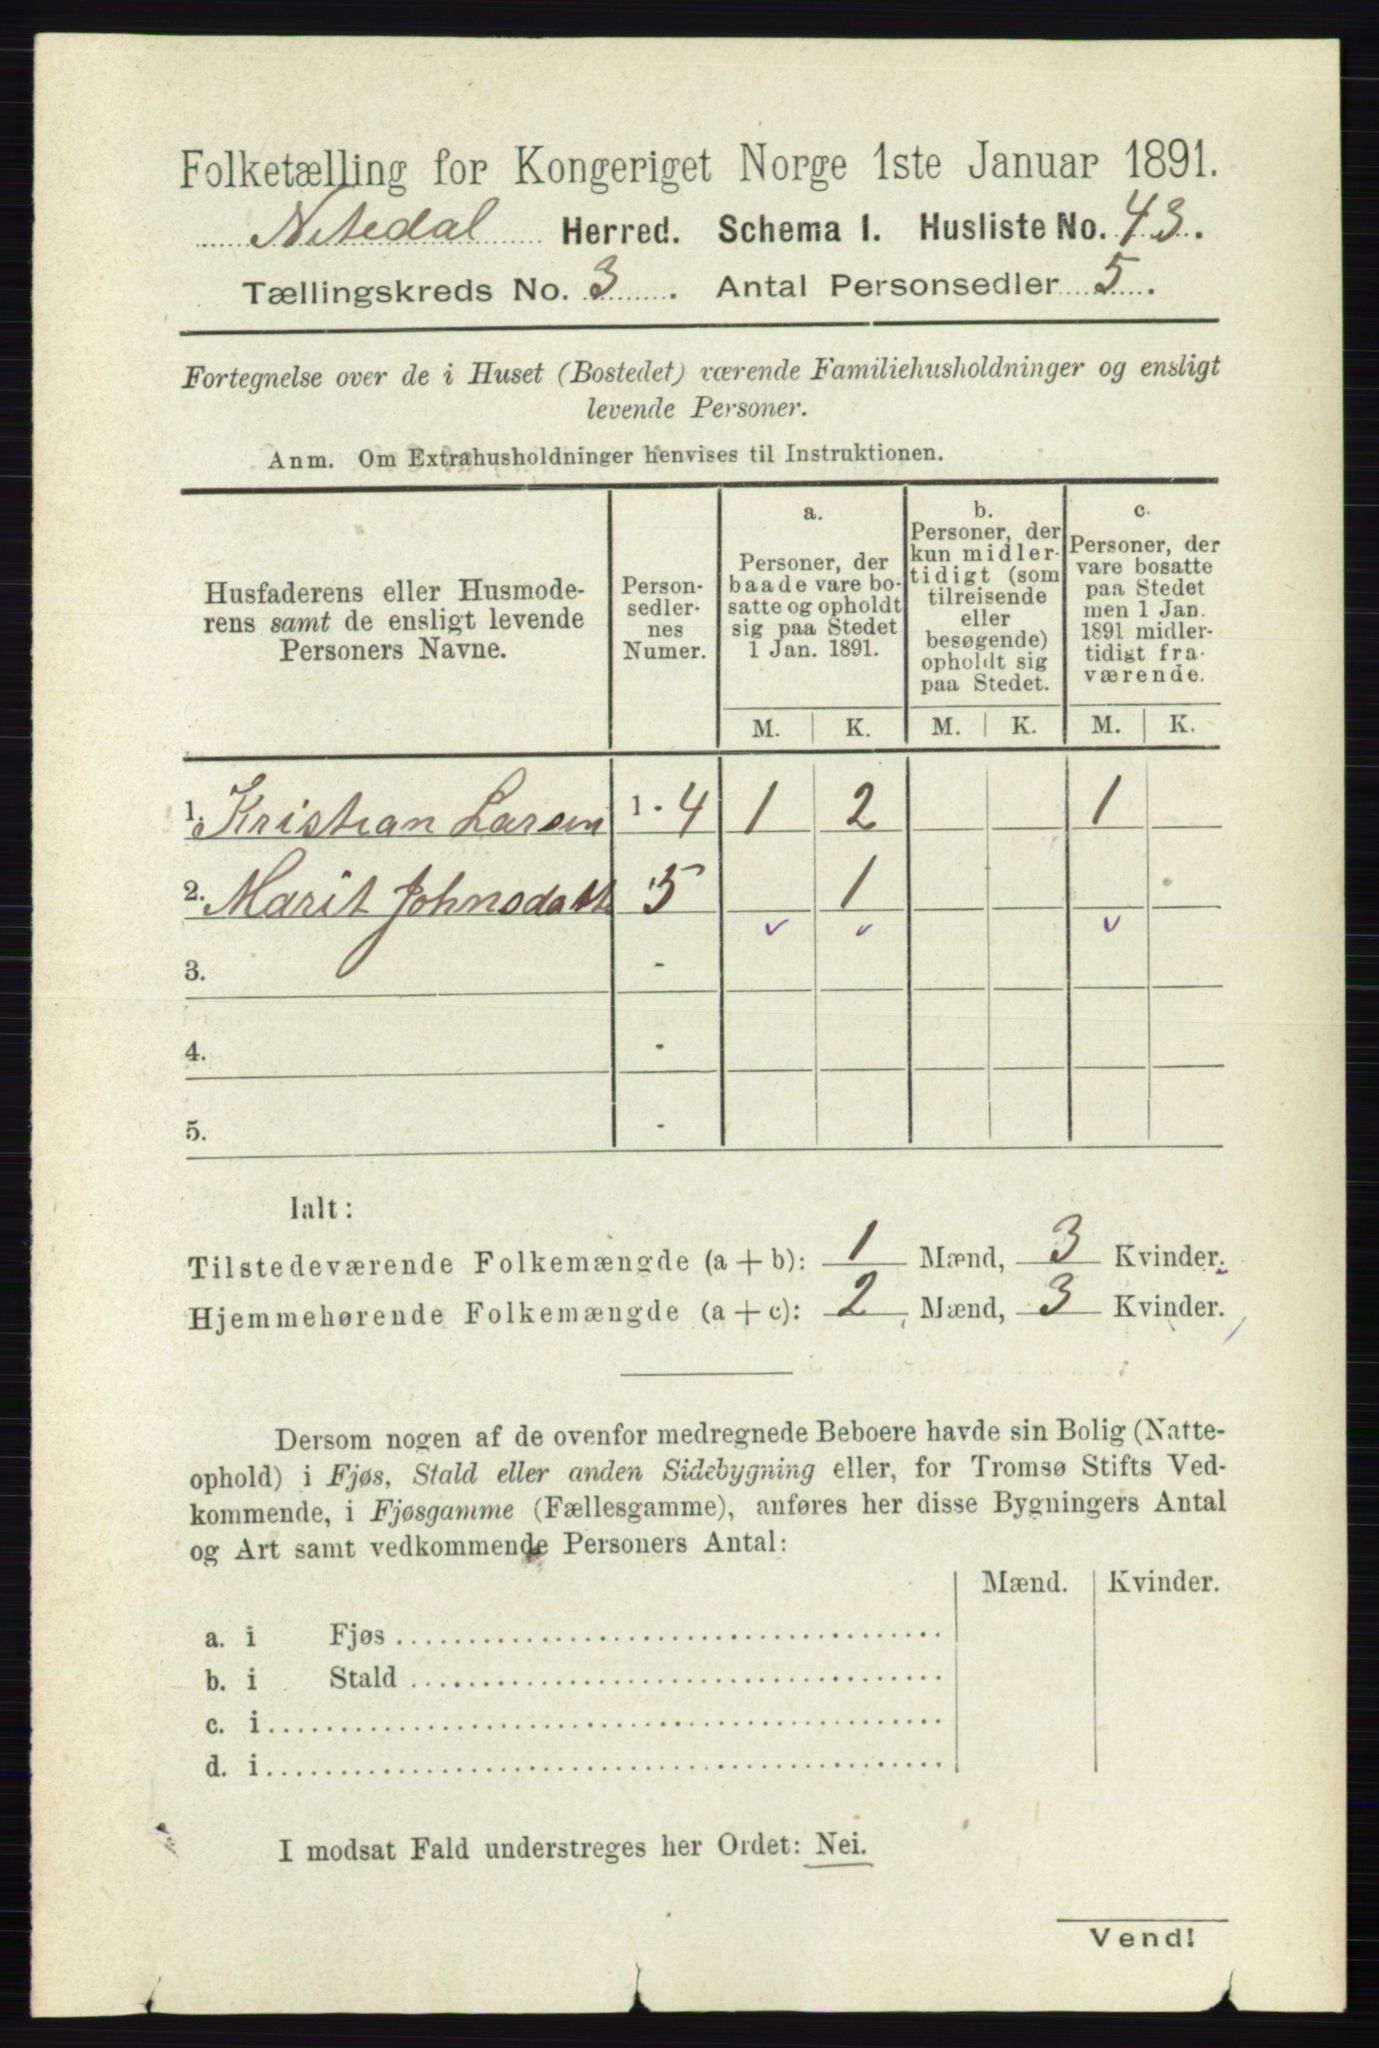 Folketælling for Kongeriget Norge 1ste Januar 1891.
Nitedal Herred. Schema 1. Husliste No. 43.
Tællingskreds No. 3. Antal Personsedler 5.
Fortegnelse over de i Huset (Bostedet) værende Familiehusholdninger og ensligt
levende Personer.
Anm. Om Extrahusholdninger henvises til Instruktionen.
Husfaderens eller Husmode-
rens samt de ensligt levende
Personers Navne.
Person-
sedler-
nes
Numer.
a.
Personer, der
baade vare bo-
satte og opholdt
sig paa Stedet
1 Jan. 1891.
b.
Personer, der
kun midler-
tidigt (som
tilreisende
eller
besøgende)
opholdt sig
paa Stedet.
c.
Personer, der
vare bosatte
paa Stedet
men 1 Jan.
1891 midler-
tidigt fra-
værende.
M. K. M. K. M. K.
1. Kristian Larsen 1 - 4 1 2 1
2. Marit Johnsdatt 5 1
3. -
4. -
5. -
Ialt:
Tilstedeværende Folkemængde (a + b): 1 Mænd, 3 Kvinder.
Hjemmehørende Folkemængde (a + c): 2 Mænd, 3 Kvinder.
Dersom nogen af de ovenfor medregnede Beboere havde sin Bolig (Natte-
ophold) i Fjøs, Stald eller anden Sidebygning eller, for Tromsø Stifts Ved-
kommende, i Fjøsgamme (Fællesgamme), anføres her disse Bygningers Antal
og Art samt vedkommende Personers Antal:
Mænd. Kvinder.
a. i Fjøs
b. i Stald
c. i
d. i
I modsat Fald understreges her Ordet: Nei.
Vend!